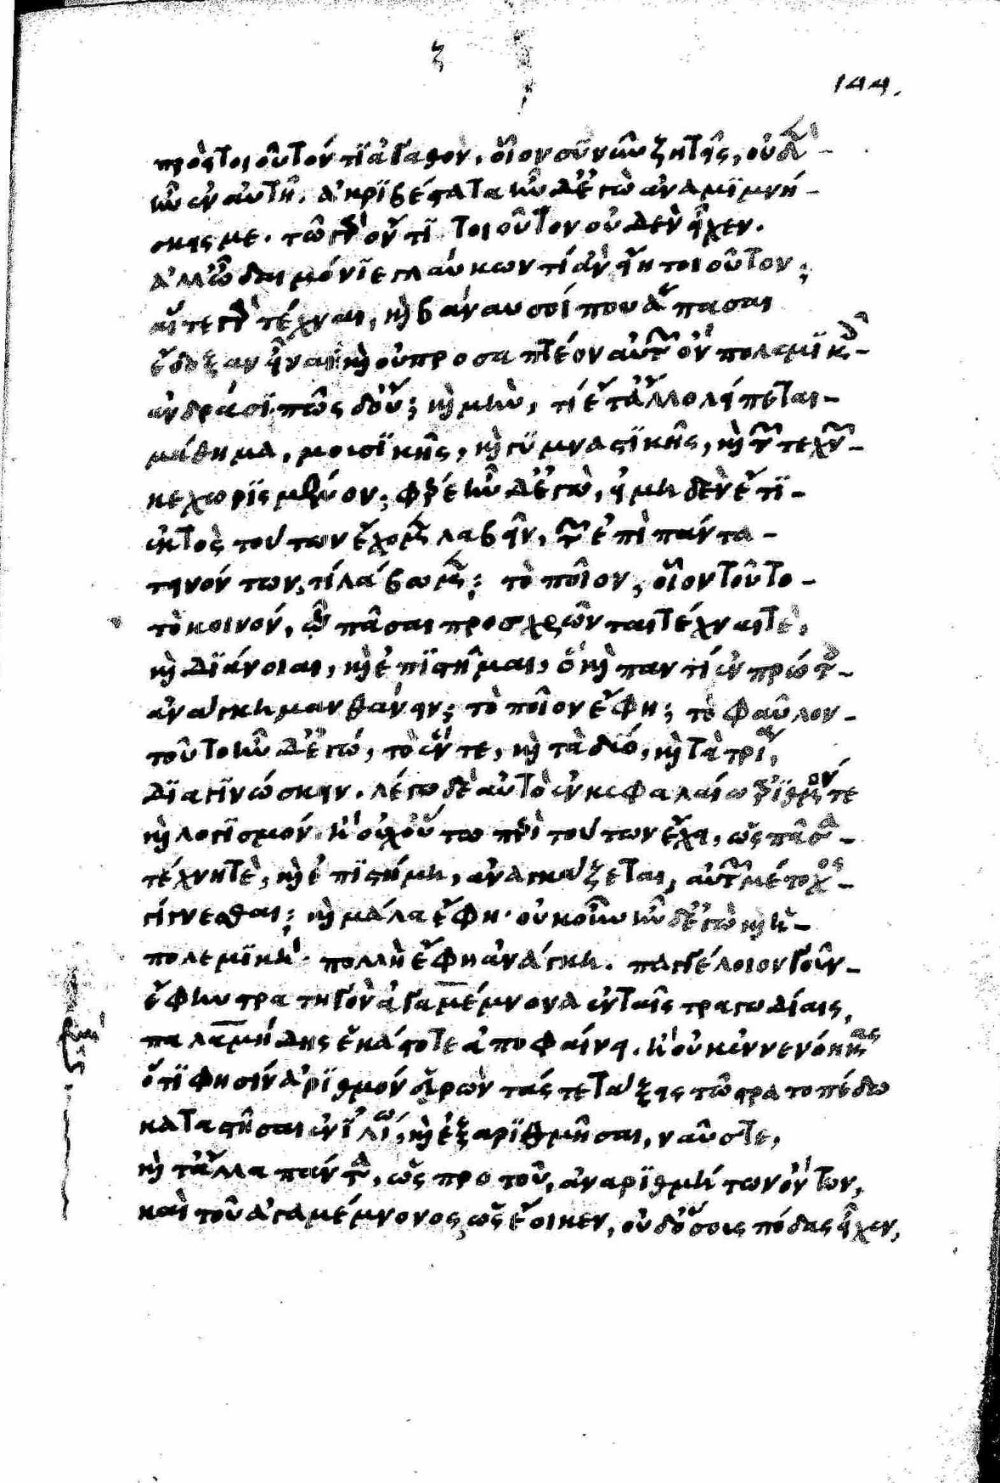 ζ
144.
πρὸς τοιοῦτόν τι ἀγαθὸν, οἷον σὺ νῦν ζητεῖς, οὐδὲν
ἦν ἐν αὐτῇ. ἀκριβέστατα ἦν δ' ἐγὼ ἀναμιμνή-
σκεις με. τῷ γὰρ ὄντι τοιοῦτον οὐδὲν εἶχεν.
ἀλλ' ὦ δαιμόνιε γλαύκων τί ἂν εἴη τοιοῦτον;
αἵ τε γὰρ τέχναι, καὶ βάναυσοί που ἅπασαι
ἔδοξαν εἶναι καὶ οὐ προσαπτέον αὐτῶν πολεμικοῖς
ἀνδράσι. πῶς δ' οὔ; καὶ μὴν, τί ἔτ' ἄλλο λείπεται
μάθημα, μουσικῆς, καὶ γυμναστικῆς, καὶ τῶν τεχνῶν
κεχωρισμένον; φέρε ἦν δ' ἐγὼ, εἰ μηδὲν ἔτι
ἐκτὸς τούτων ἔχομεν λαβεῖν, τῶν ἐπὶ πάντα
τεινόντων, τι λάβωμεν; τὸ ποῖον, οἷον τοῦτο
τὸ κοινόν, ᾧ πᾶσαι προσχρῶνται τέχναι τὲ,
καὶ διάνοιαι, καὶ ἐπιστῆμαι, ὃ καὶ παντὶ ἐν πρώτοις
ἀνάγκη μανθάνειν; τὸ ποῖον ἔφη; τὸ φαῦλον
τοῦτο ἦν δ' ἐγώ, τὸ ἕν τε, καὶ τὰ δύο, καὶ τὰ τρία,
διαγινώσκειν. λέγω δὲ αὐτὸ ἐν κεφαλαίω ἀριθμόν τε
καὶ λογισμόν. ἢ οὐχ οὕτω περὶ τούτων ἔχει, ὡς πᾶσα
τέχνη τὲ, καὶ ἐπιστήμη, ἀναγκάζεται, αὐτῶν μέτοχος
γίγνεσθαι; καὶ μάλα ἔφη. οὐκοῦν ἦν δ' ἐγὼ καὶ ἡ
πολεμικὴ. πολλὴ ἔφη ἀνάγκη. παγγέλοιον γοῦν
ἔφην στρατηγὸν ἀγαμέμνονα ἐν ταῖς τραγωδίαις,
παλαμήδης ἑκάστοτε ἀποφαίνει. ἢ οὐκ ἐννενόηκας
ὅτι φησὶν ἀριθμὸν εὑρὼν τάς τε τάξεις τῷ στρατοπέδω
καταστῆσαι ἐν ἰλίω, καὶ ἐξαριθμῆσαι, ναῦς τε,
καὶ τἄλλα πάντα, ὡς πρὸ τοῦ, ἀναριθμήτων ὄντων,
καὶ τοῦ ἀγαμέμνονος ὡς ἔοικεν, οὐδ' ὅσους πόδας εἶχεν,